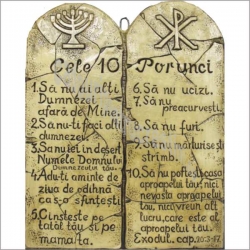 Cele 10 Porunci
1. Să nu ai alți
Dumnezei
afară de Mine.
2. Sa nu-ti faci alti
dumnezei
3. Sa nu iei in desert
Numele Domnului
Dumnezeului tau.
4. Adu-ti aminte de
ziua de odihnă
ca s-o sfintești
5. Cinsteste pe
tatal tău si pe
mama ta.
6. Să nu ucizi.
7. Să nu
preacurvesti.
8. Să nu furi.
9. Să nu mărturisesti
strimb.
10. Să nu poftesti casa
aproapelui tău, nici
nevasta aproapelui
tău, nici vreun alt
lucru, care este al
aproapelui tău.
Exodul. cap. 20:3-17